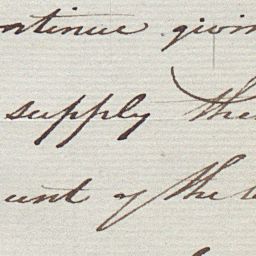 ntinue givin
supply the
unt of the